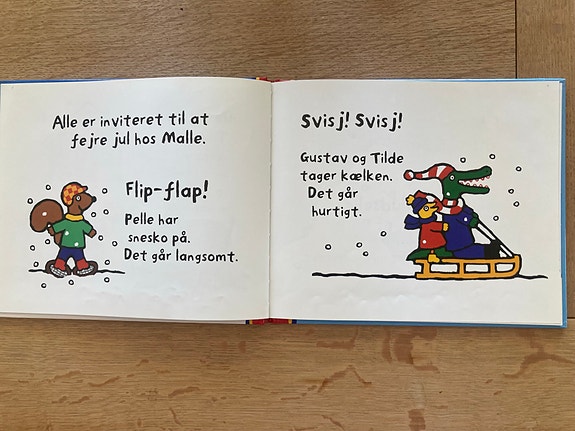 Alle er inviteret til at
fejre jul hos Malle.
Flip-flap!
Pelle har
snesko på.
Det går langsomt.
Svisj! Svisj!
Gustav og Tilde
tager kælken.
Det går
hurtigt.